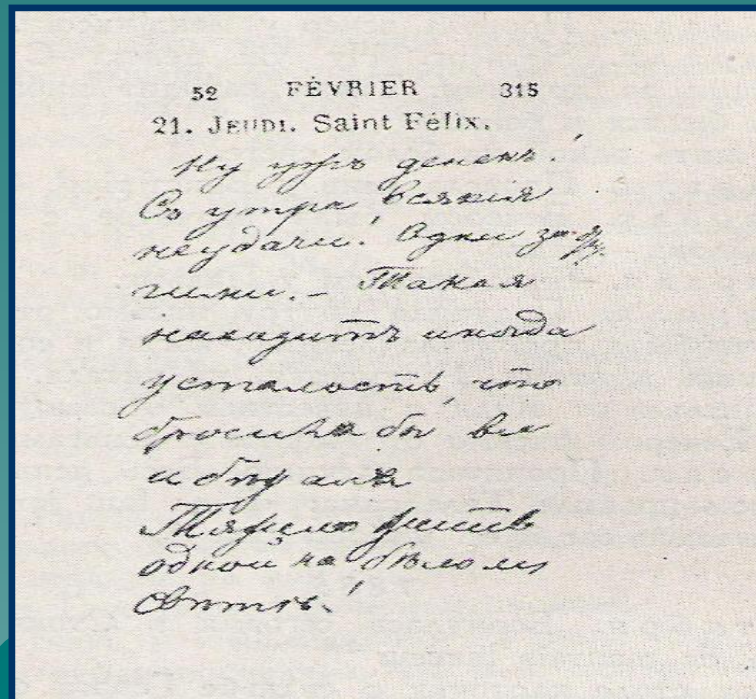 52 FÉVRIER 315
21. JEUDI. Saint Félix.
Ну ужъ денекъ!
Съ утра всякія
неудачи! Одни за дру-
гими. – Такая
находитъ иногда
усталость, что
бросила бы все
и
Тяжело жить
одной на бѣломъ
свѣтѣ!